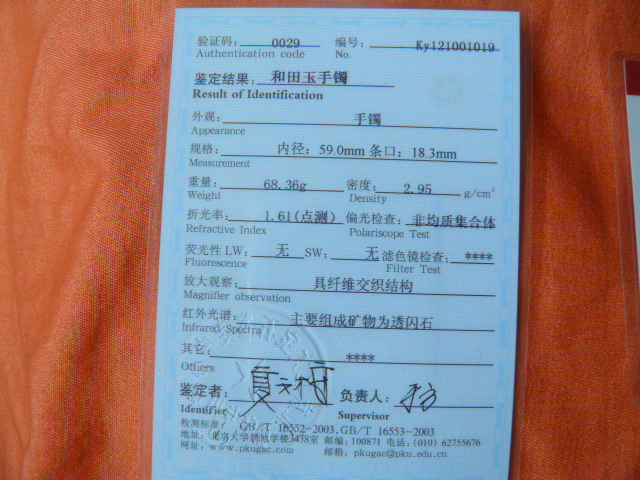 验证码: 0029 编号: Ky121001019
Authentication code No.
鉴定结果: 和田玉手镯
Result of Identification
外观: 手镯
Appearance
规格: 内径: 59.0mm 条口: 18.3mm
Measurement
重量: 68.36g 密度: 2.95 g/cm³
Weight Density
折光率: 1.61(点测) 偏光检查: 非均质集合体
Refractive Index Polariscope Test
荧光性 LW: 无 SW: 无 滤色镜检查: ****
Fluorescence Filter Test
放大观察: 具纤维交织结构
Magnifier observation
红外光谱: 主要组成矿物为透闪石
Infrared Spectra
其它: ****
Others
鉴定者: 负责人:
Identifier Supervisor
检测标准: GB/T 16552-2003,GB/T 16553-2003
地址: 北京大学新地学楼3438室 邮编: 100871 电话: (010) 62755676
网址: www.pkugac.com 邮箱: pkugac@pku.edu.cn